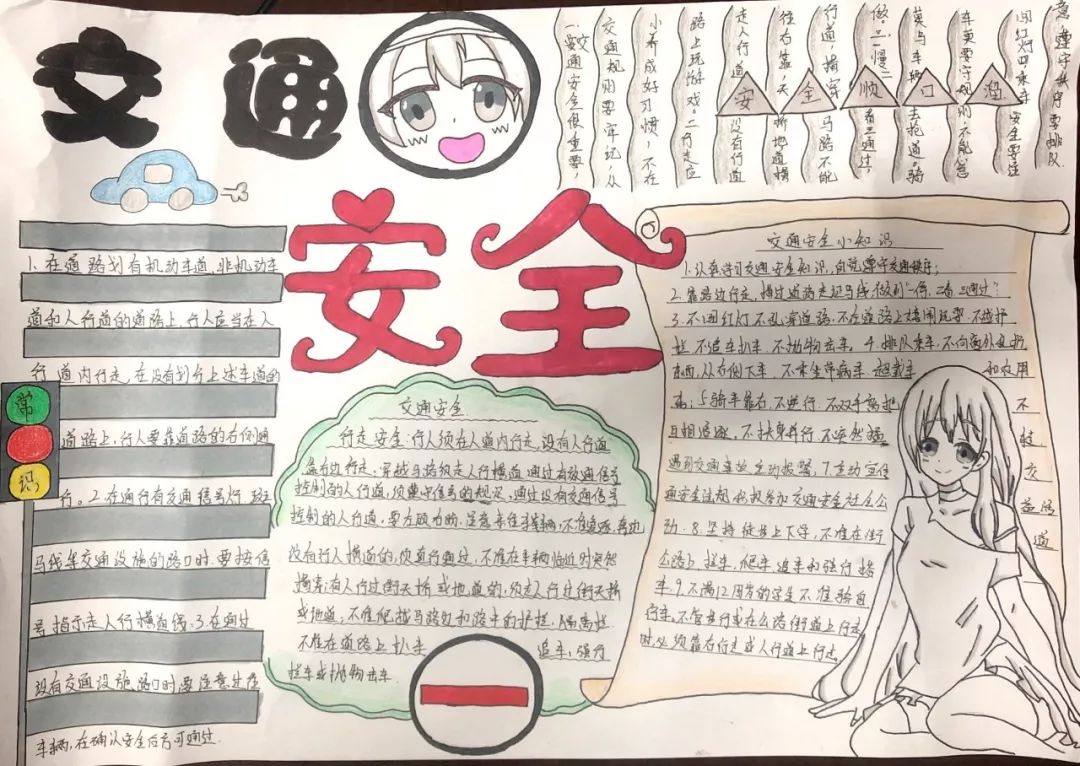 交通
安全
安全顺口溜
一、交通安全很重要,
交通规则要牢记,从
小养成好习惯,不在
路上玩游戏。二、行走应
走人行道,没有行道
往右靠,天桥地道横
行道,横穿马路不能
做。三、一慢二看三通过,
莫与车辆去抢道。骑
车更要守规则,不能急
闯红灯。四、乘车安全要注
意,遵守秩序要排队
1、在道路划有机动车道、非机动车
道和人行道的道路上,行人应当在人
行道内行走,在没有划分上述车道的
道路上,行人要靠道路的右侧通
行。2、在通行有交通信号灯、斑
马线等交通设施的路口时,要按信
号指示走人行横道线。3、在通过
没有交通设施路口时,要注意过往
车辆,在确认安全后方可通过.
常
识
交通安全
行走安全:行人须在人道内行走,没有人行道
靠右边行走;穿越马路须走人行横道;通过有交通信号
控制的人行道,须遵守信号的规定;通过没有交通信号
控制的人行道,要左顾右盼,注意来往车辆,不准追逐,奔跑
没有行人横道的,须直行通过,不准在车辆临近时突然
横穿;有人行过街天桥或地道的,须走人行过街天桥
或地道;不准爬越马路边和路中的护栏、隔离栏
不准在道路上扒车
追车,强行
拦车或抛物击车
交通安全小知识
1.认真学习交通安全知识,自觉遵守交通秩序;
2.靠路边行走,横过道路走斑马线做到"一停、二看、三通过";
3.不闯红灯不乱穿道路,不在道路上嬉闹玩耍,不越护
栏,不追车扒车,不抛物击车。4.排队乘车,不向窗外乱扔
东西,从右侧下车,不乘坐带病车、超载车 和农用
车;5骑车靠右,不逆行,不双手离把 不
互相追逐,不扶身并行,不突然猛
遇到交通事故主动报警,7.主动宣传 交
通安全法规,积极参加交通安全社会公 益活
动。8.坚持徒步上下学,不准在街 道
公路上拦车、爬车、追车和强行搭
车。9.不满12周岁的学生不准骑自
行车,不管是行或在公路街道上行走
时,必须靠右行走或人行道上行走